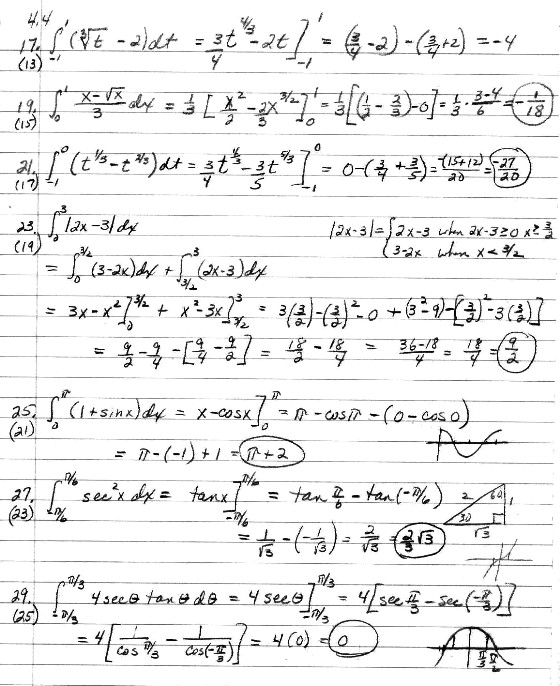 4.4
17. ∫₋₁¹ (∛t - 2)dt = 3/4 t^(4/3) - 2t ]₋₁¹ = (3/4 - 2) - (3/4 + 2) = -4
(13)
19. ∫₀¹ (x - √x)/3 dx = 1/3 [ x²/2 - 2x^(3/2)/3 ]₀¹ = 1/3 [(1/2 - 2/3) - 0] = 1/3 · (3-4)/6 = -1/18
(15)
21. ∫₋₁⁰ (t^(1/3) - t^(2/3)) dt = 3/4 t^(4/3) - 3/5 t^(5/3) ]₋₁⁰ = 0 - (3/4 + 3/5) = -(15+12)/20 = -27/20
(17)
23. ∫₀³ |2x - 3| dx |2x-3| = { 2x-3 when 2x-3 ≥ 0 x ≥ 3/2
(19) 3-2x when x < 3/2
= ∫₀^(3/2) (3-2x)dx + ∫_(3/2)³ (2x-3)dx
= 3x - x² ]₀^(3/2) + x² - 3x ]_(3/2)³ = 3(3/2) - (3/2)² - 0 + (3² - 9) - [(3/2)² - 3(3/2)]
= 9/2 - 9/4 - [9/4 - 9/2] = 18/2 - 18/4 = (36-18)/4 = 18/4 = 9/2
25. ∫₀^π (1 + sinx)dx = x - cosx ]₀^π = π - cosπ - (0 - cos0)
(21)
= π - (-1) + 1 = π + 2
27. ∫_(-π/6)^(π/6) sec²x dx = tanx ]_(-π/6)^(π/6) = tan π/6 - tan(-π/6) 2 60 1
(23) 30 √3
= 1/√3 - (-1/√3) = 2/√3 = 2/3 √3
29. ∫_(-π/3)^(π/3) 4 secθ tanθ dθ = 4 secθ ]_(-π/3)^(π/3) = 4[sec π/3 - sec(-π/3)]
(25)
= 4[ 1/cos π/3 - 1/cos(-π/3) ] = 4(0) = 0 π/3 π/2